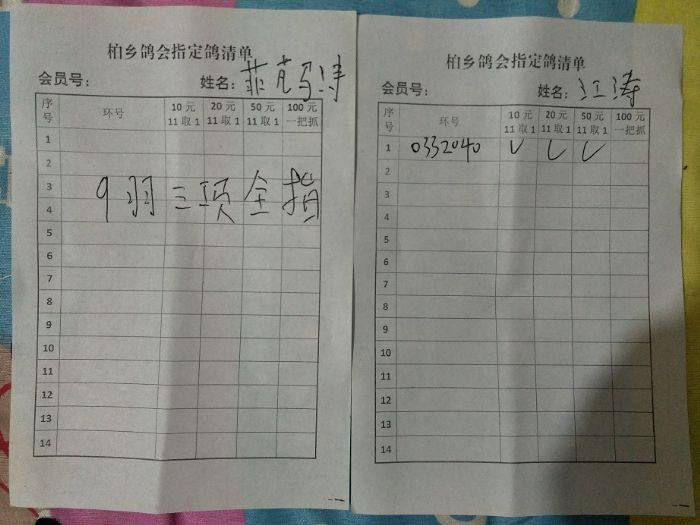 柏乡鸽会指定鸽清单
会员号： 姓名：菲克马涛
序号 环号 10元 11取1 20元 11取1 50元 11取1 100元 一把抓
1
2
3
9羽三项全指
4
5
6
7
8
9
10
11
12
13
14
柏乡鸽会指定鸽清单
会员号： 姓名：江涛
序号 环号 10元 11取1 20元 11取1 50元 11取1 100元 一把抓
1 0332040 √ √ √
2
3
4
5
6
7
8
9
10
11
12
13
14